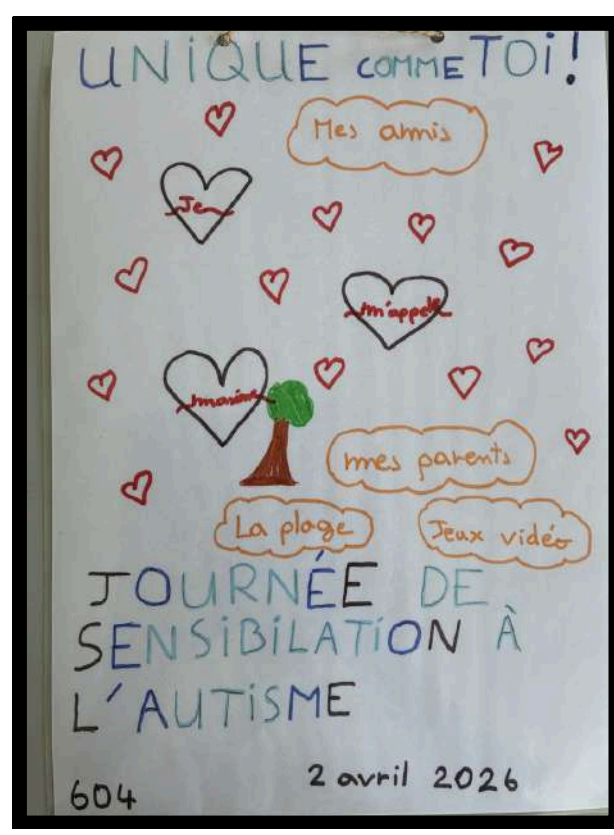 UNiQUE COMME TOi!
Mes amis
Je
m'appele
maxime
mes parents
La plage
Jeux vidéo
JOURNÉE DE
SENSiBiLATiON À
L'AUTiSME
2 avril 2026
604